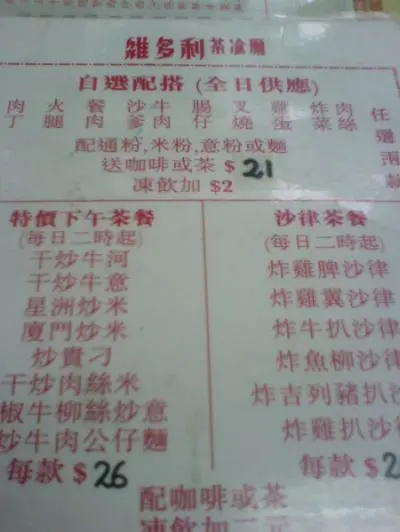 維多利茶
自選配搭 (全日供應)
肉 火 餐 沙牛 腸 叉 雞 炸肉
丁 腿 肉 爹肉 仔 燒 蛋 菜絲
任選兩款
配通粉,米粉,意粉或麵
送咖啡或茶 $ 21
凍飲加 $2
特價下午茶餐
(每日二時起)
干炒牛河
干炒牛意
星洲炒米
廈門炒米
炒貴刁
干炒肉絲米
椒牛柳絲炒意
炒牛肉公仔麵
每款 $ 26
沙律茶餐
(每日二時起)
炸雞脾沙律
炸雞翼沙律
炸牛扒沙律
炸魚柳沙律
炸吉列豬扒沙
炸雞扒沙律
每款 $ 2
配咖啡或茶
凍飲加二元